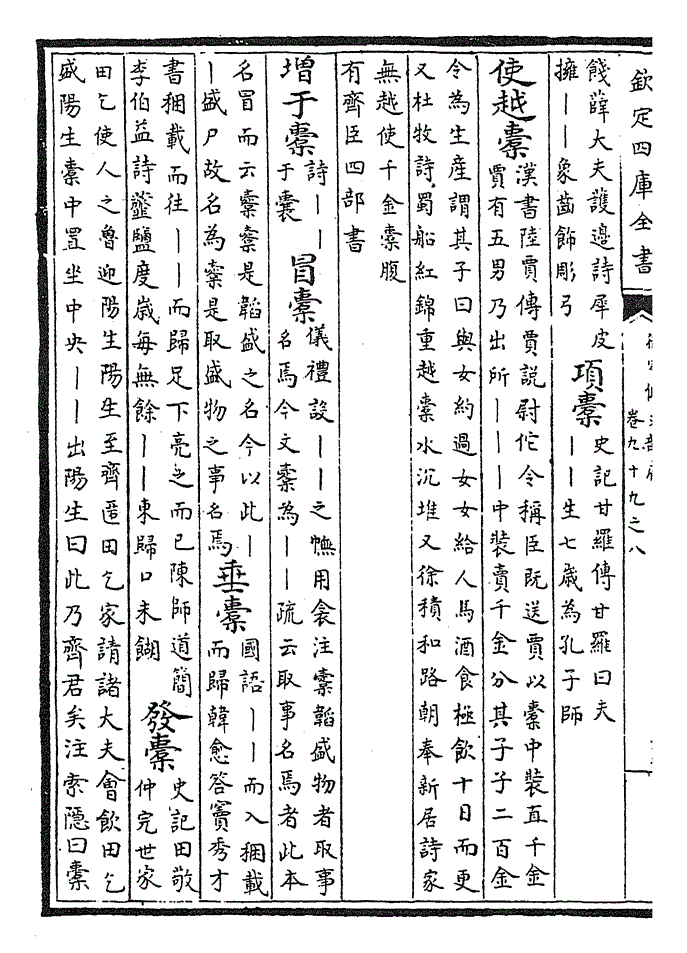 欽定四庫全書
卷九十九之八
餞薛大夫護邊詩犀皮
擁——象齒飾彫弓
項橐
史記甘羅傳甘羅曰夫
——生七歲為孔子師
使越橐
漢書陸賈傳賈說尉佗令稱臣既送賈以橐中裝直千金
賈有五男乃出所———中裝賣千金分其子子二百金
令為生産謂其子曰與女約過女女給人馬酒食極飲十日而更
又杜牧詩蜀船紅錦重越橐水沉堆又徐積和路朝奉新居詩家
無越使千金橐腹
有齊臣四部書
增
于橐
詩——
于囊
冒橐
儀禮設——之幠用衾注橐韜盛物者取事
名焉今文橐為——疏云取事名焉者此本
名冒而云橐橐是韜盛之名今以此—
—盛尸故名為橐是取盛物之事名焉
垂橐
國語——而入稇載
而歸韓愈答竇秀才
書稇載而往——而歸足下亮之而已陳師道簡
李伯益詩虀鹽度歲每無餘——東歸口未餬
發橐
史記田敬
仲完世家
田乞使人之魯迎陽生陽生至齊匿田乞家請諸大夫會飲田乞
盛陽生橐中置坐中央——出陽生曰此乃齊君矣注索隱曰橐